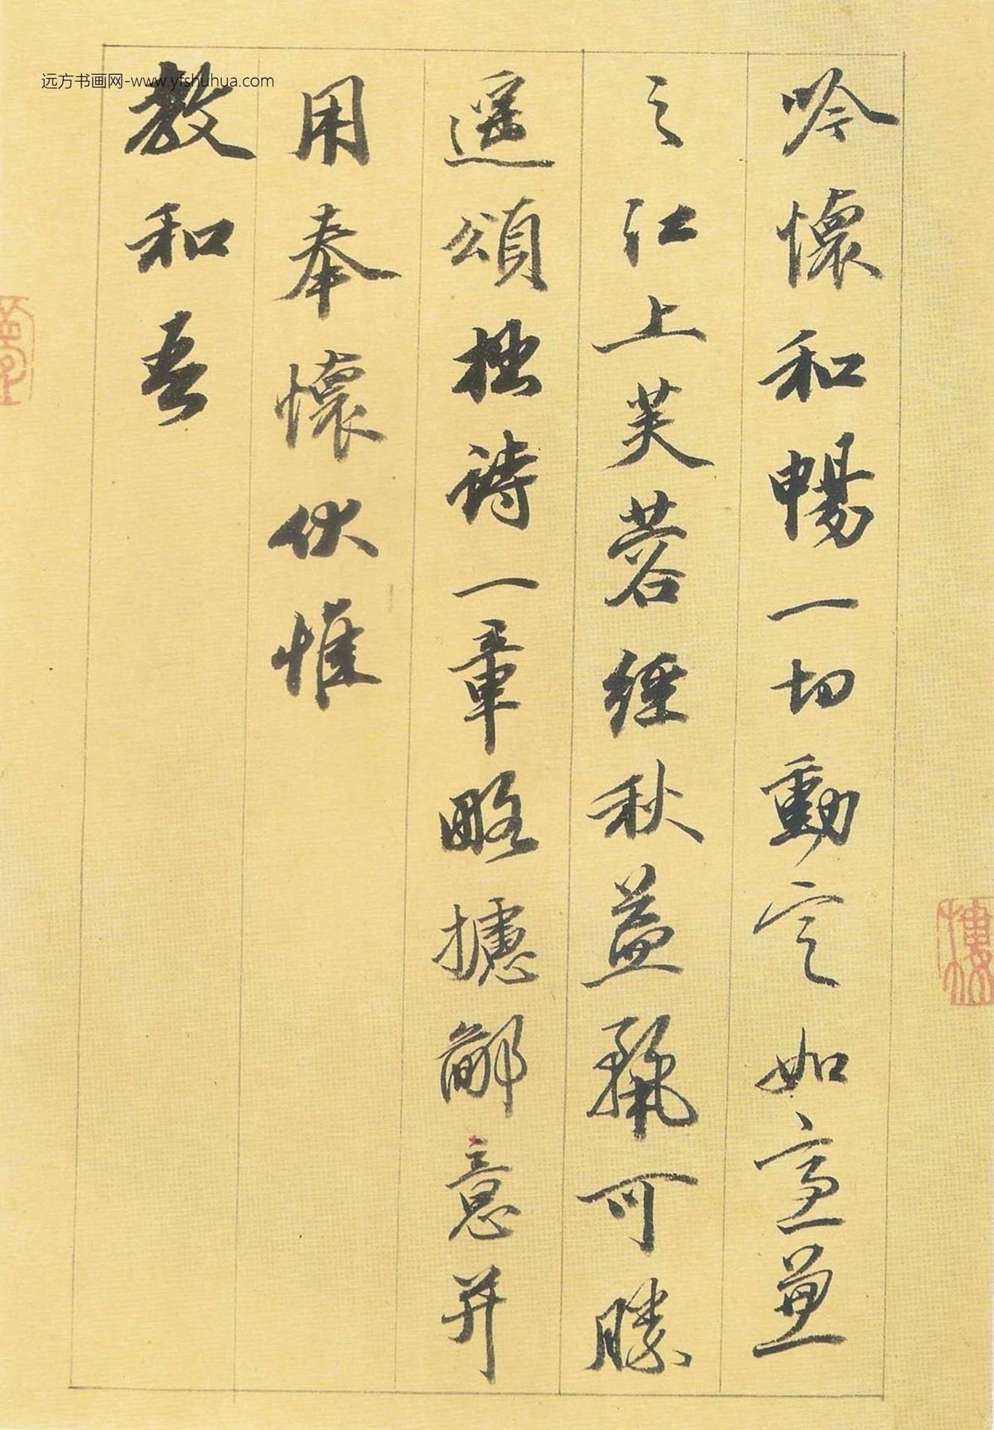 远方书画网-www.yfshuhua.com
吟懷和暢一切動定如宜兼
之江上芙蓉經秋益可勝
遥頌拙詩一章略攄鄙意并
用奉懷伏惟
教和吾